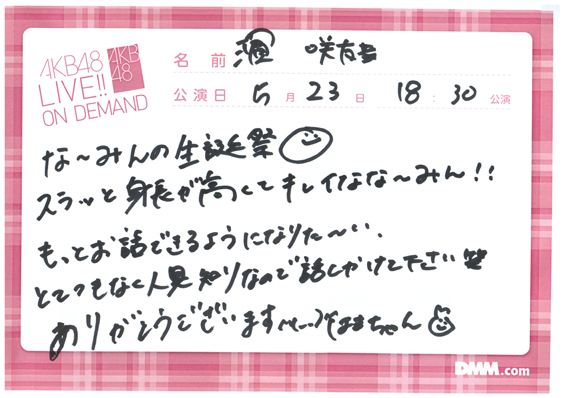 AKB48
LIVE!!
ON DEMAND
AKB
48
名前 濵 咲友菜
公演日 5月23日 18:30公演
な〜みんの生誕祭
スラッと身長が高くてキレイなな〜みん!!
もっとお話できるようになりた〜い.
とてつもなく人見知りなので話しかけて下さい笑
ありがとうございます
ちゃん
DMM.com